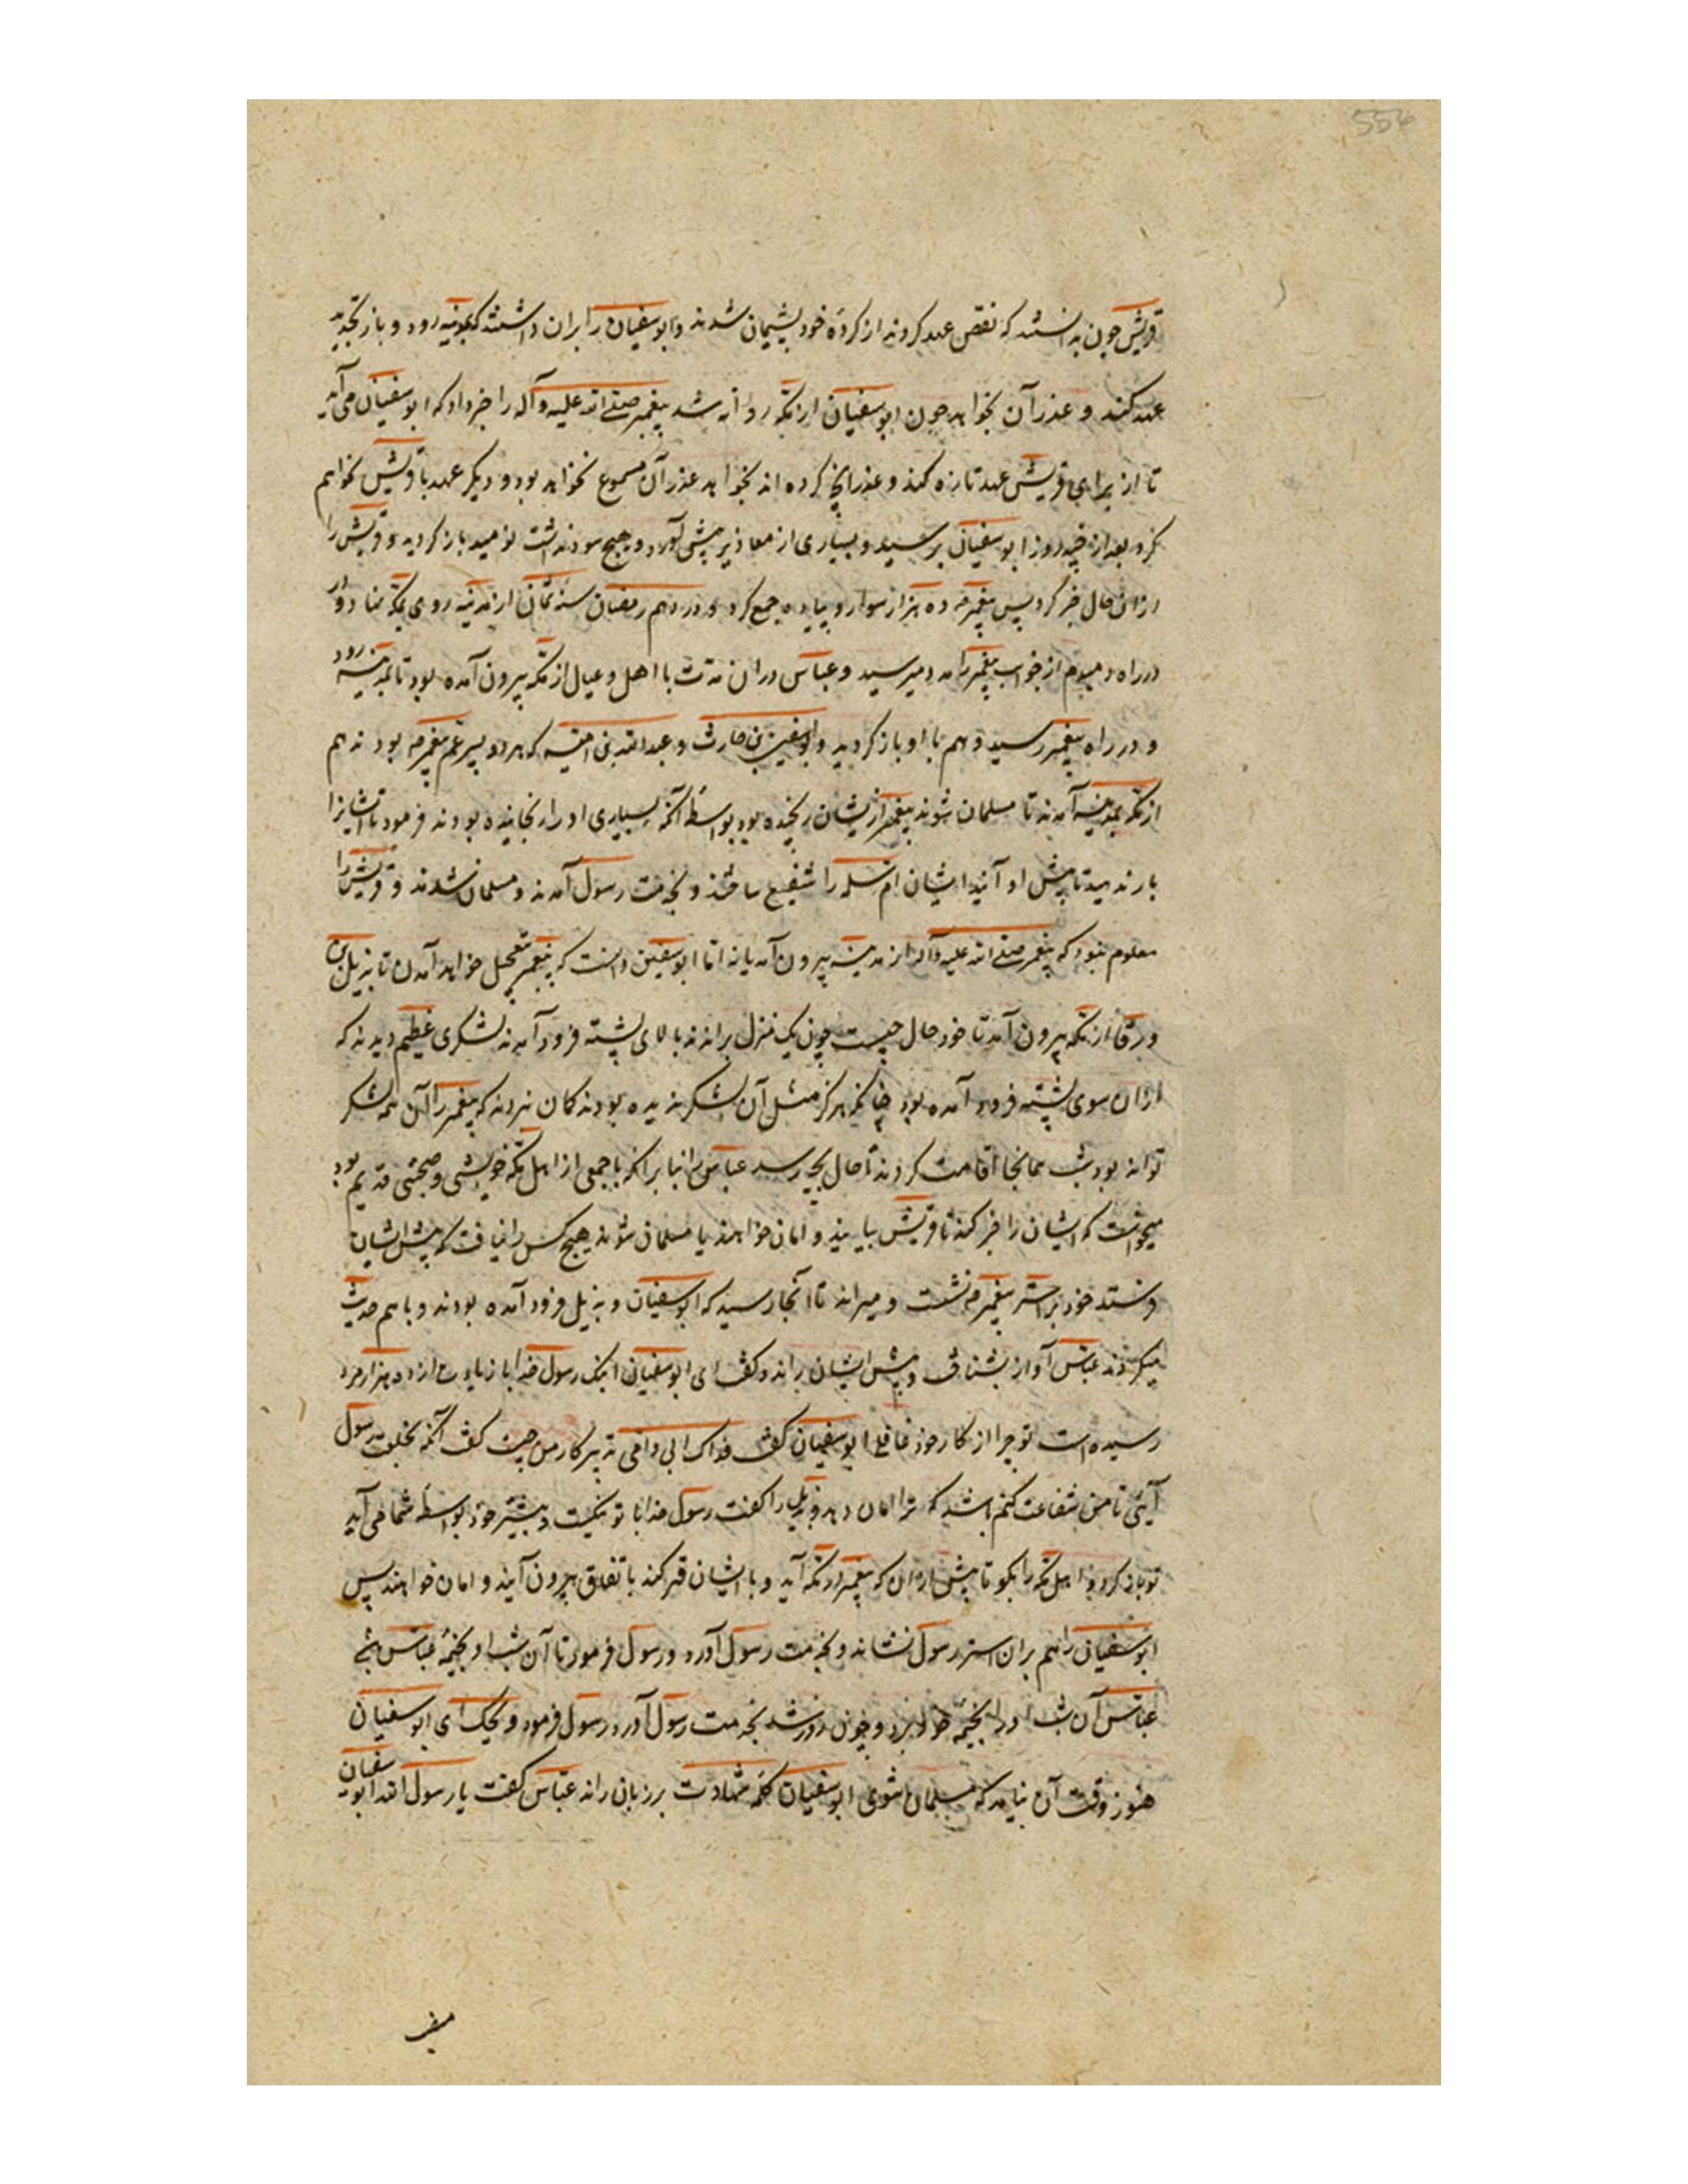 556
قریش چون بدانستند که نقض عهد کردند از کرده خود پشیمان شدند و ابوسفیان را بران داشتند که بمدینه رود و باز تجدید
عهد کند و عذر آن بخواهد چون ابوسفیان از مکه روانه شد پیغمبر صلی الله علیه وآله را خبر داد که ابوسفیان می آید
تا از برای قریش عهد تازه کند و عذر آنچ کرده اند بخواهد عذر آن مسموع نخواهد بود و دیگر عهد با قریش نخواهم
کرد بعد از چند روز ابوسفیان برسید و بسیاری از معاذیر پیش آورد و هیچ سود نداشت نومید باز کردید و قریش را
ازان حال خبر کرد پس پیغمبر ده هزار سوار و پیاده جمع کرد و در دهم رمضان سنه ثمان از مدینه روی بمکه نهاد و در
راه مردم از پیغمبر را مدد میرسید و عباس دران مدت با اهل و عیال از مکه بیرون آمده بود تا بمدینه رود
و در راه پیغمبر رسید و هم با او باز کردید و ابوسفین بن حارث و عبدالله بن امیه که هر دو پسر عم پیغمبر بودند هم
از مکه بمدینه آمدند تا مسلمان شوند پیغمبر ازیشان رنجیده بود بواسطه آنکه بسیاری او را رنجانیده بودند فرمود تا ایشانرا
بار ندهید تا پیش او آیند ایشان ام سلمه را شفیع ساختند و بخدمت رسول آمدند و مسلمان شدند و قریش را
معلوم نبود که پیغمبر صلی الله علیه وآله از مدینه بیرون آمد یا نه اما ابوسفین دانست که پیغمبر بتعجیل خواهد آمدن تا بدیل بن
ورقا از مکه بیرون آمد تا خود حال چیست چون یک منزل براندند بالای پشته فرود آمدند لشکری عظیم دیدند که
ازان سوی پشته فرود آمده بود چنانکه هرگز مثل آن لشکر ندیده بودند کمان نبردند که پیغمبر را آن همه لشکر
تواند بود شب همانجا اقامت کردند تا حال بچه رسد عباس بنا برانکه با جمعی از اهل مکه خویشی و صحبتی قدیم بود
میخواست که ایشان را خبر کند تا قریش بیایند و امان خواهند یا مسلمان شوند هیچ کس را نیافت که پیش ایشان
فرستد خود بر استر پیغمبر نشست و میراند تا آنجا رسید که ابوسفیان و بدیل فرود آمده بودند و باهم حدیث
میکردند عباس آواز بشناخت و پیش ایشان راند و گفت ای ابوسفیان اینک رسول خدا با زیادت از ده هزار مرد
رسیده است تو چرا از کار خود غافلی ابوسفیان گفت فداک ابی و امی تدبیر کار من چیست گفت آنکه بخدمت رسول
آئی تا من شفاعت کنم باشد که ترا امان دهد و بدیل را گفت رسول خدا با تو نیکیست و بیشتر خود بواسطه شما می آید
تو باز کرد و اهل مکه را بگو تا پیش ازان که پیغمبر در مکه آید و با ایشان قهر کند باتفاق بیرون آیند و امان خواهند پس
ابوسفیان را هم بران استر رسول نشاند و بخدمت رسول آورد و رسول فرمود تا آن شب او بخیمه عباس باشد
عباس آن شب او را بخیمه خود برد و چون روز شد بخدمت رسول آورد رسول فرمود ویحک ای ابوسفیان
هنوز وقت آن نیامد که مسلمان شوی ابوسفیان کلمه شهادت بر زبان راند عباس گفت یا رسول الله ابوسفیان